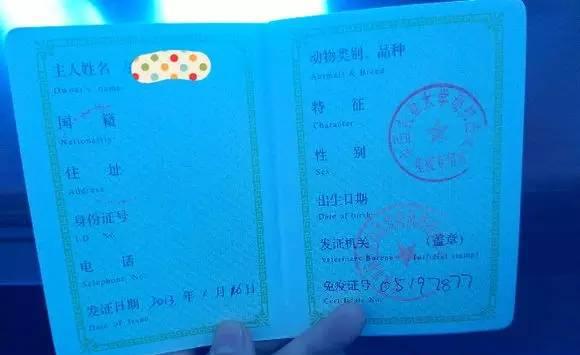 主人姓名
Owner's name
国 籍
Nationality
住 址
Address
身份证号
I.D No.
电 话
Telephone No.
发证日期 2013 年 1 月 16日
Date of Issue
动物类别、品种
Animals & Breed
特 征
Character
性 别
Sex
出生日期
Date of birth
发证机关 (盖章)
Veterinary Bureau
免疫证号 05197877
Certificate No.